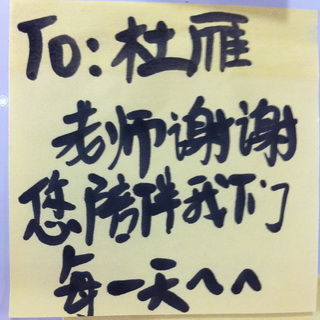 TO:杜雁
老师谢谢
您陪伴我们
每一天^^